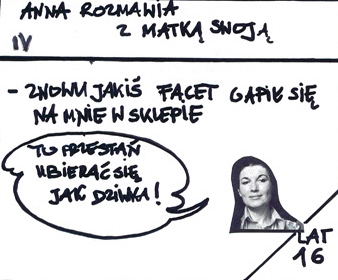 ANNA ROZMAWIA
Z MATKĄ SWOJĄ
IV
- ZNOWU JAKIŚ FACET GAPIŁ SIĘ
NA MNIE W SKLEPIE
TO PRZESTAŃ
UBIERAĆ SIĘ
JAK DZIWKA!
LAT
16